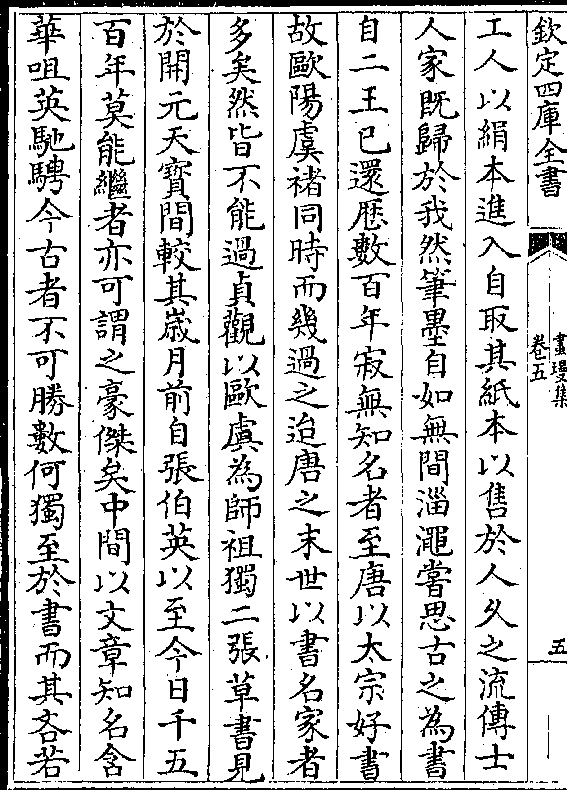 欽定四庫全書
畫墁集
卷五
五
工人以絹本進入自取其紙本以售於人久之流傳士
人家既歸於我然筆墨自如無間淄澠嘗思古之為書
自二王已還歴數百年寂無知名者至唐以太宗好書
故歐陽虞褚同時而幾過之迨唐之末世以書名家者
多矣然皆不能過貞觀以歐虞為師祖獨二張草書見
於開元天寳間較其嵗月前自張伯英以至今日千五
百年莫能繼者亦可謂之豪傑矣中間以文章知名含
華咀英馳騁今古者不可勝數何獨至於書而其吝若